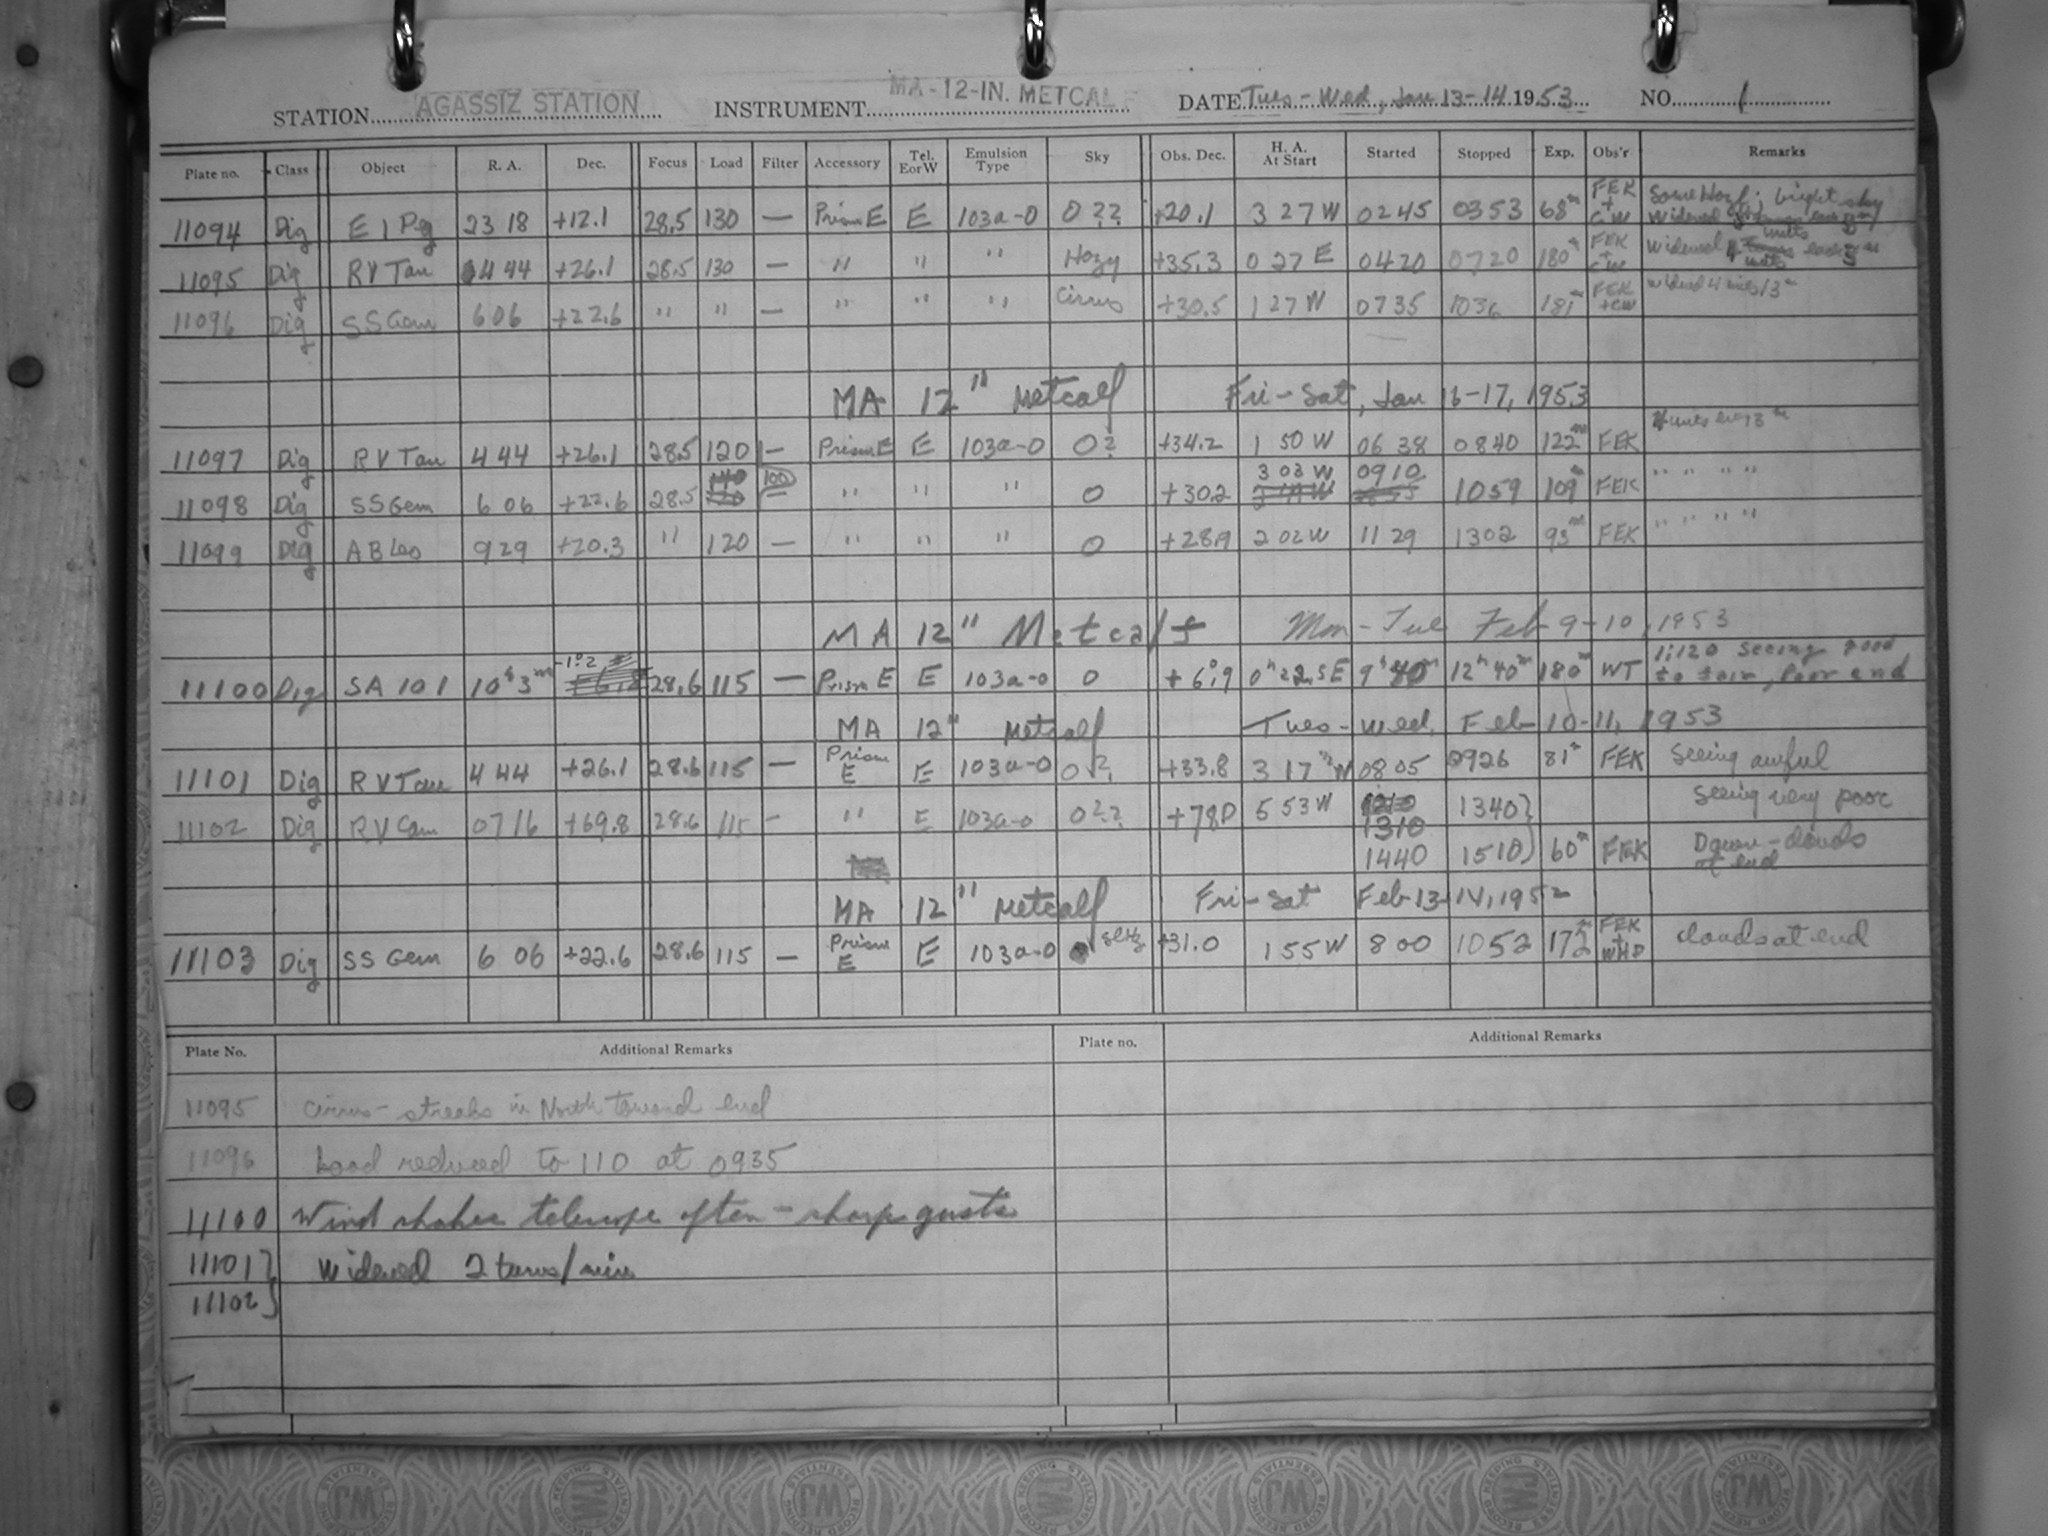 STATION AGASSIZ STATION INSTRUMENT MA-12-IN. METCAL DATE Tues-Wed, Jan 13-14 1953 NO. 1
Plate no. Class Object R. A. Dec. Focus Load Filter Accessory Tel. EorW Emulsion Type Sky Obs. Dec. H. A. At Start Started Stopped Exp. Obs'r Remarks
11094 Dig EI Peg 23 18 +12.1 28.5 130 — Prism E E 103a-O O?? +20.1 3 27 W 0245 0353 68m FEK + CW Some Haze; bright sky Widened
11095 Dig RV Tau 4 44 +26.1 28.5 130 — " " " Hazy +35.3 0 27 E 0420 0720 180m FEK + CW Widened 4 units each 3m
11096 Dig SS Gem 6 06 +22.6 " " — " " " Cirrus +30.5 1 27 W 0735 1036 181m FEK + CW
MA 12" Metcalf Fri-Sat, Jan 16-17, 1953
11097 Dig RV Tau 4 44 +26.1 28.5 120 — Prism E E 103a-O O? +34.2 1 50 W 0638 0840 122m FEK 4 units every 3m
11098 Dig SS Gem 6 06 +22.6 28.5 100 — " " " O +30.2 3 03 W 0910 1059 109m FEK " " " "
11099 Dig AB Leo 9 29 +20.3 " 120 — " " " O +28.9 2 02 W 11 29 1302 93m FEK " " " "
MA 12" Metcalf Mon-Tue Feb 9-10, 1953
11100 Dig SA 101 10h 3m -1°.2 28.6 115 — Prism E E 103a-O O +6°.9 0h 22.5 E 9h 40m 12h 40m 180m WT 11:20 seeing good to fair, Poor end
MA 12" Metcalf Tues-Wed, Feb 10-11, 1953
11101 Dig RV Tau 4 44 +26.1 28.6 115 — Prism E E 103a-O O? +33.8 3 17 W 0805 0926 81m FEK Seeing awful
11102 Dig RV Cam 07 16 +69.8 28.6 115 - " E 103a-O O?? 5 53 W 1310 1340} Seeing very poor
1440 1510} 60m FEK Dawn-clouds at end
MA 12" Metcalf Fri-Sat Feb 13-14, 195
11103 Dig SS Gem 6 06 +22.6 28.6 115 — Prism E E 103a-O +31.0 1 55 W 8 00 1052 172m FEK + WHP clouds at end
Plate No. Additional Remarks Plate no. Additional Remarks
11095 Cirrus-streaks in North toward end
11096 Load reduced to 110 at 0935
11100 Wind shakes telescope often - sharp gusts
11101} Widened 2 turns/min
11102}